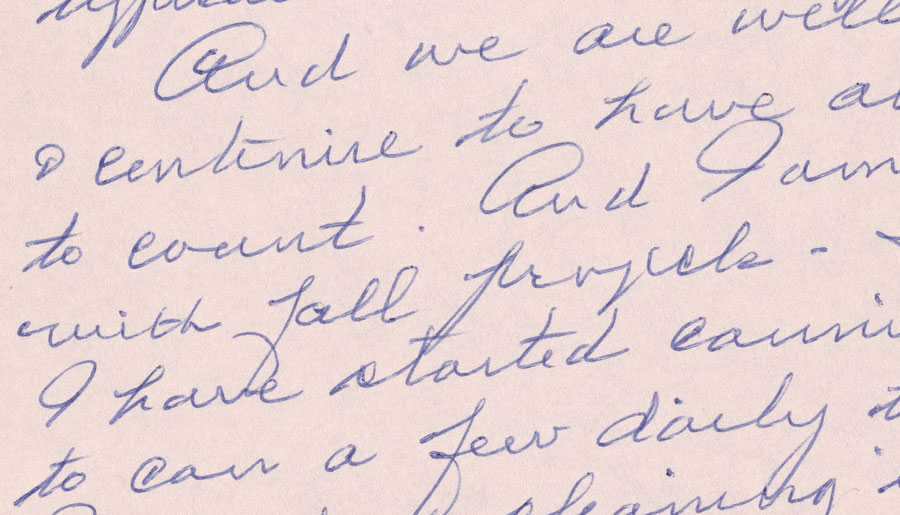 And we are well
& continue to have
to count. And I am
with fall projects -
I have started
to can a few daily
cleaning